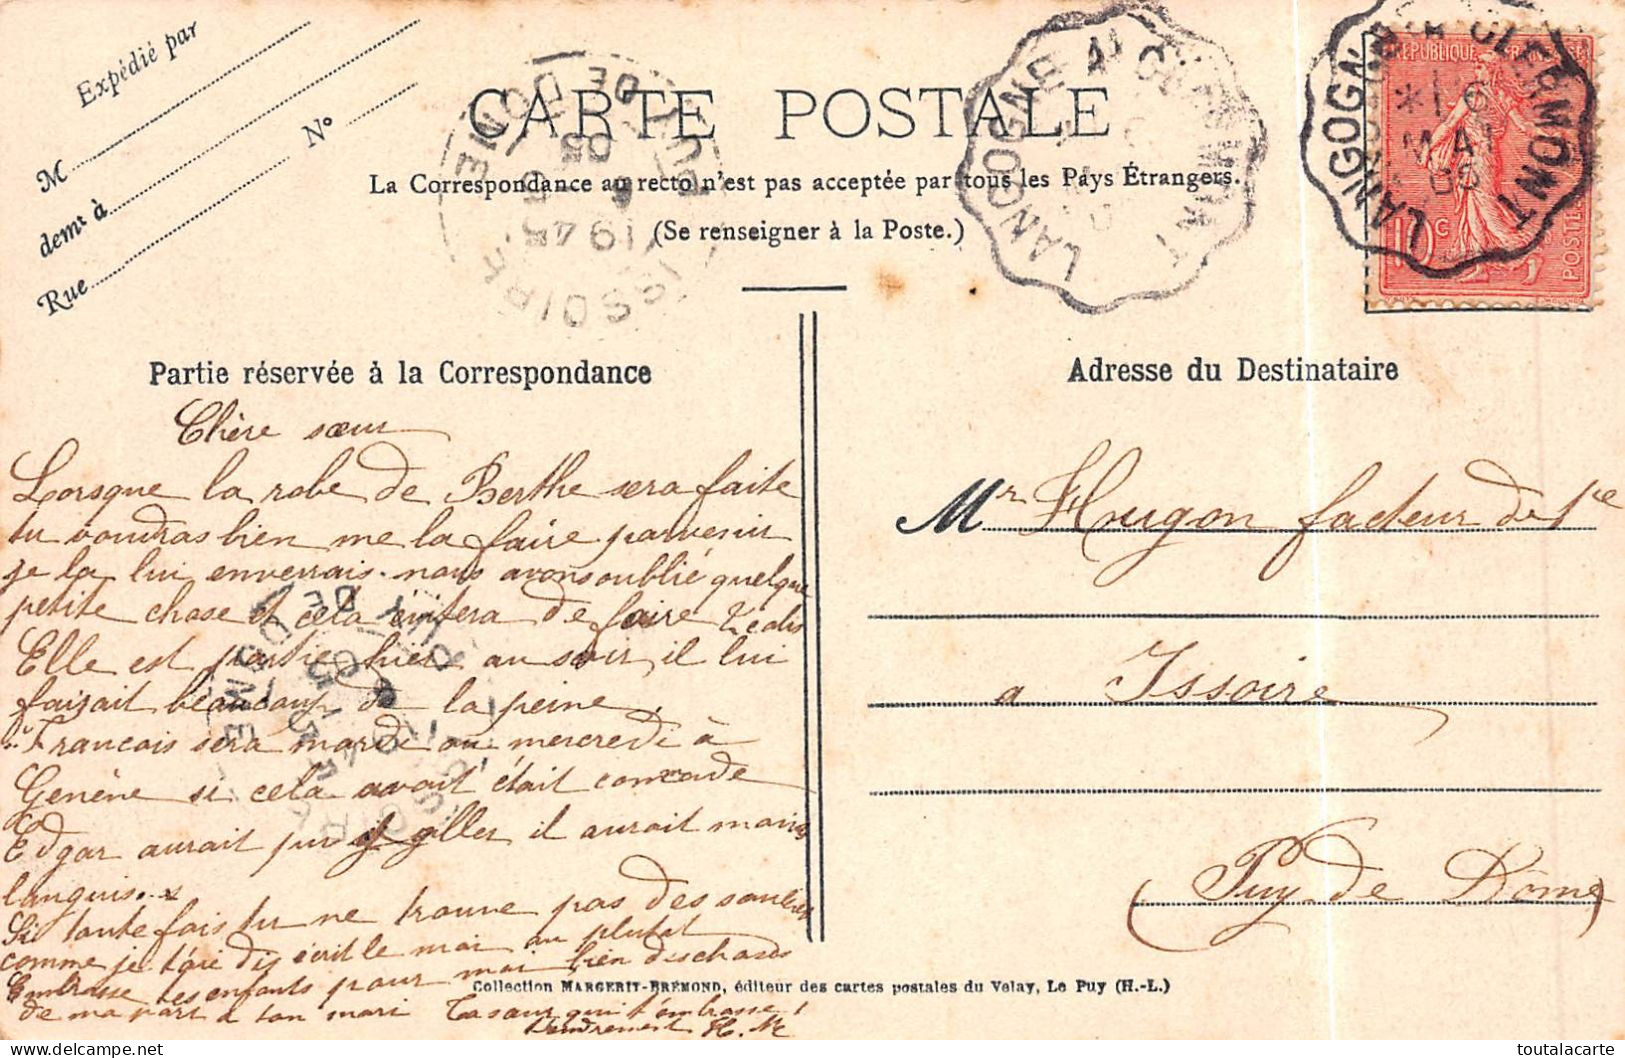 Expédié par
M
demt à
N°
Rue
CARTE POSTALE
La Correspondance au recto n'est pas acceptée par tous les Pays Étrangers.
(Se renseigner à la Poste.)
LANGOGNE A CLERMONT
LANGOGNE A CLERMONT
* 1 6
MAI
05
RÉPUBLIQUE FRANÇAISE
10 c
POSTES
ISSOIRE
PUY DE DOME
1945
6
05
Partie réservée à la Correspondance
Chère sœur
Lorsque la robe de Berthe sera faite
tu voudras bien me la faire parvenir
je la lui enverrais. nous avons oublié quelque
petite chose et cela évitera de faire 2 colis
Elle est partie hier au soir il lui
faisait beaucoup de la peine.
Francois sera mardi ou mercredi à
Genène si cela avait était comode
Edgar aurait pu y aller il aurait moins
languis..
Si toute fois tu ne trouve pas des souliers
comme je t'ai dis écrit le moi au plutot
Embrasse les enfants pour moi bien des choses
de ma part a ton mari Ta sœur qui t'embrasse !
tendrement H. M
Adresse du Destinataire
Mr Hougon facteur de 1e
a Issoire
(Puy de Dôme)
Collection MARGERIT-BRÉMOND, éditeur des cartes postales du Velay, Le Puy (H.-L.)
toutalacarte